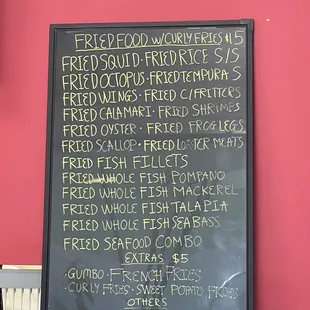 FRIED FOOD W/CURLY FRIES $15
FRIED SQUID · FRIED RICE S/S
FRIED OCTOPUS · FRIED TEMPURA S
FRIED WINGS · FRIED C/FRITTERS
FRIED CALAMARI · FRIED SHRIMPS
FRIED OYSTER · FRIED FROG LEGS
FRIED SCALLOP · FRIED LOBSTER MEATS
FRIED FISH FILLETS
FRIED WHOLE FISH POMPANO
FRIED WHOLE FISH MACKEREL
FRIED WHOLE FISH TALAPIA
FRIED WHOLE FISH SEABASS
FRIED SEAFOOD COMBO
EXTRAS $5
· GUMBO · FRENCH FRIES
· CURLY FRIES · SWEET POTATO FRIES
OTHERS